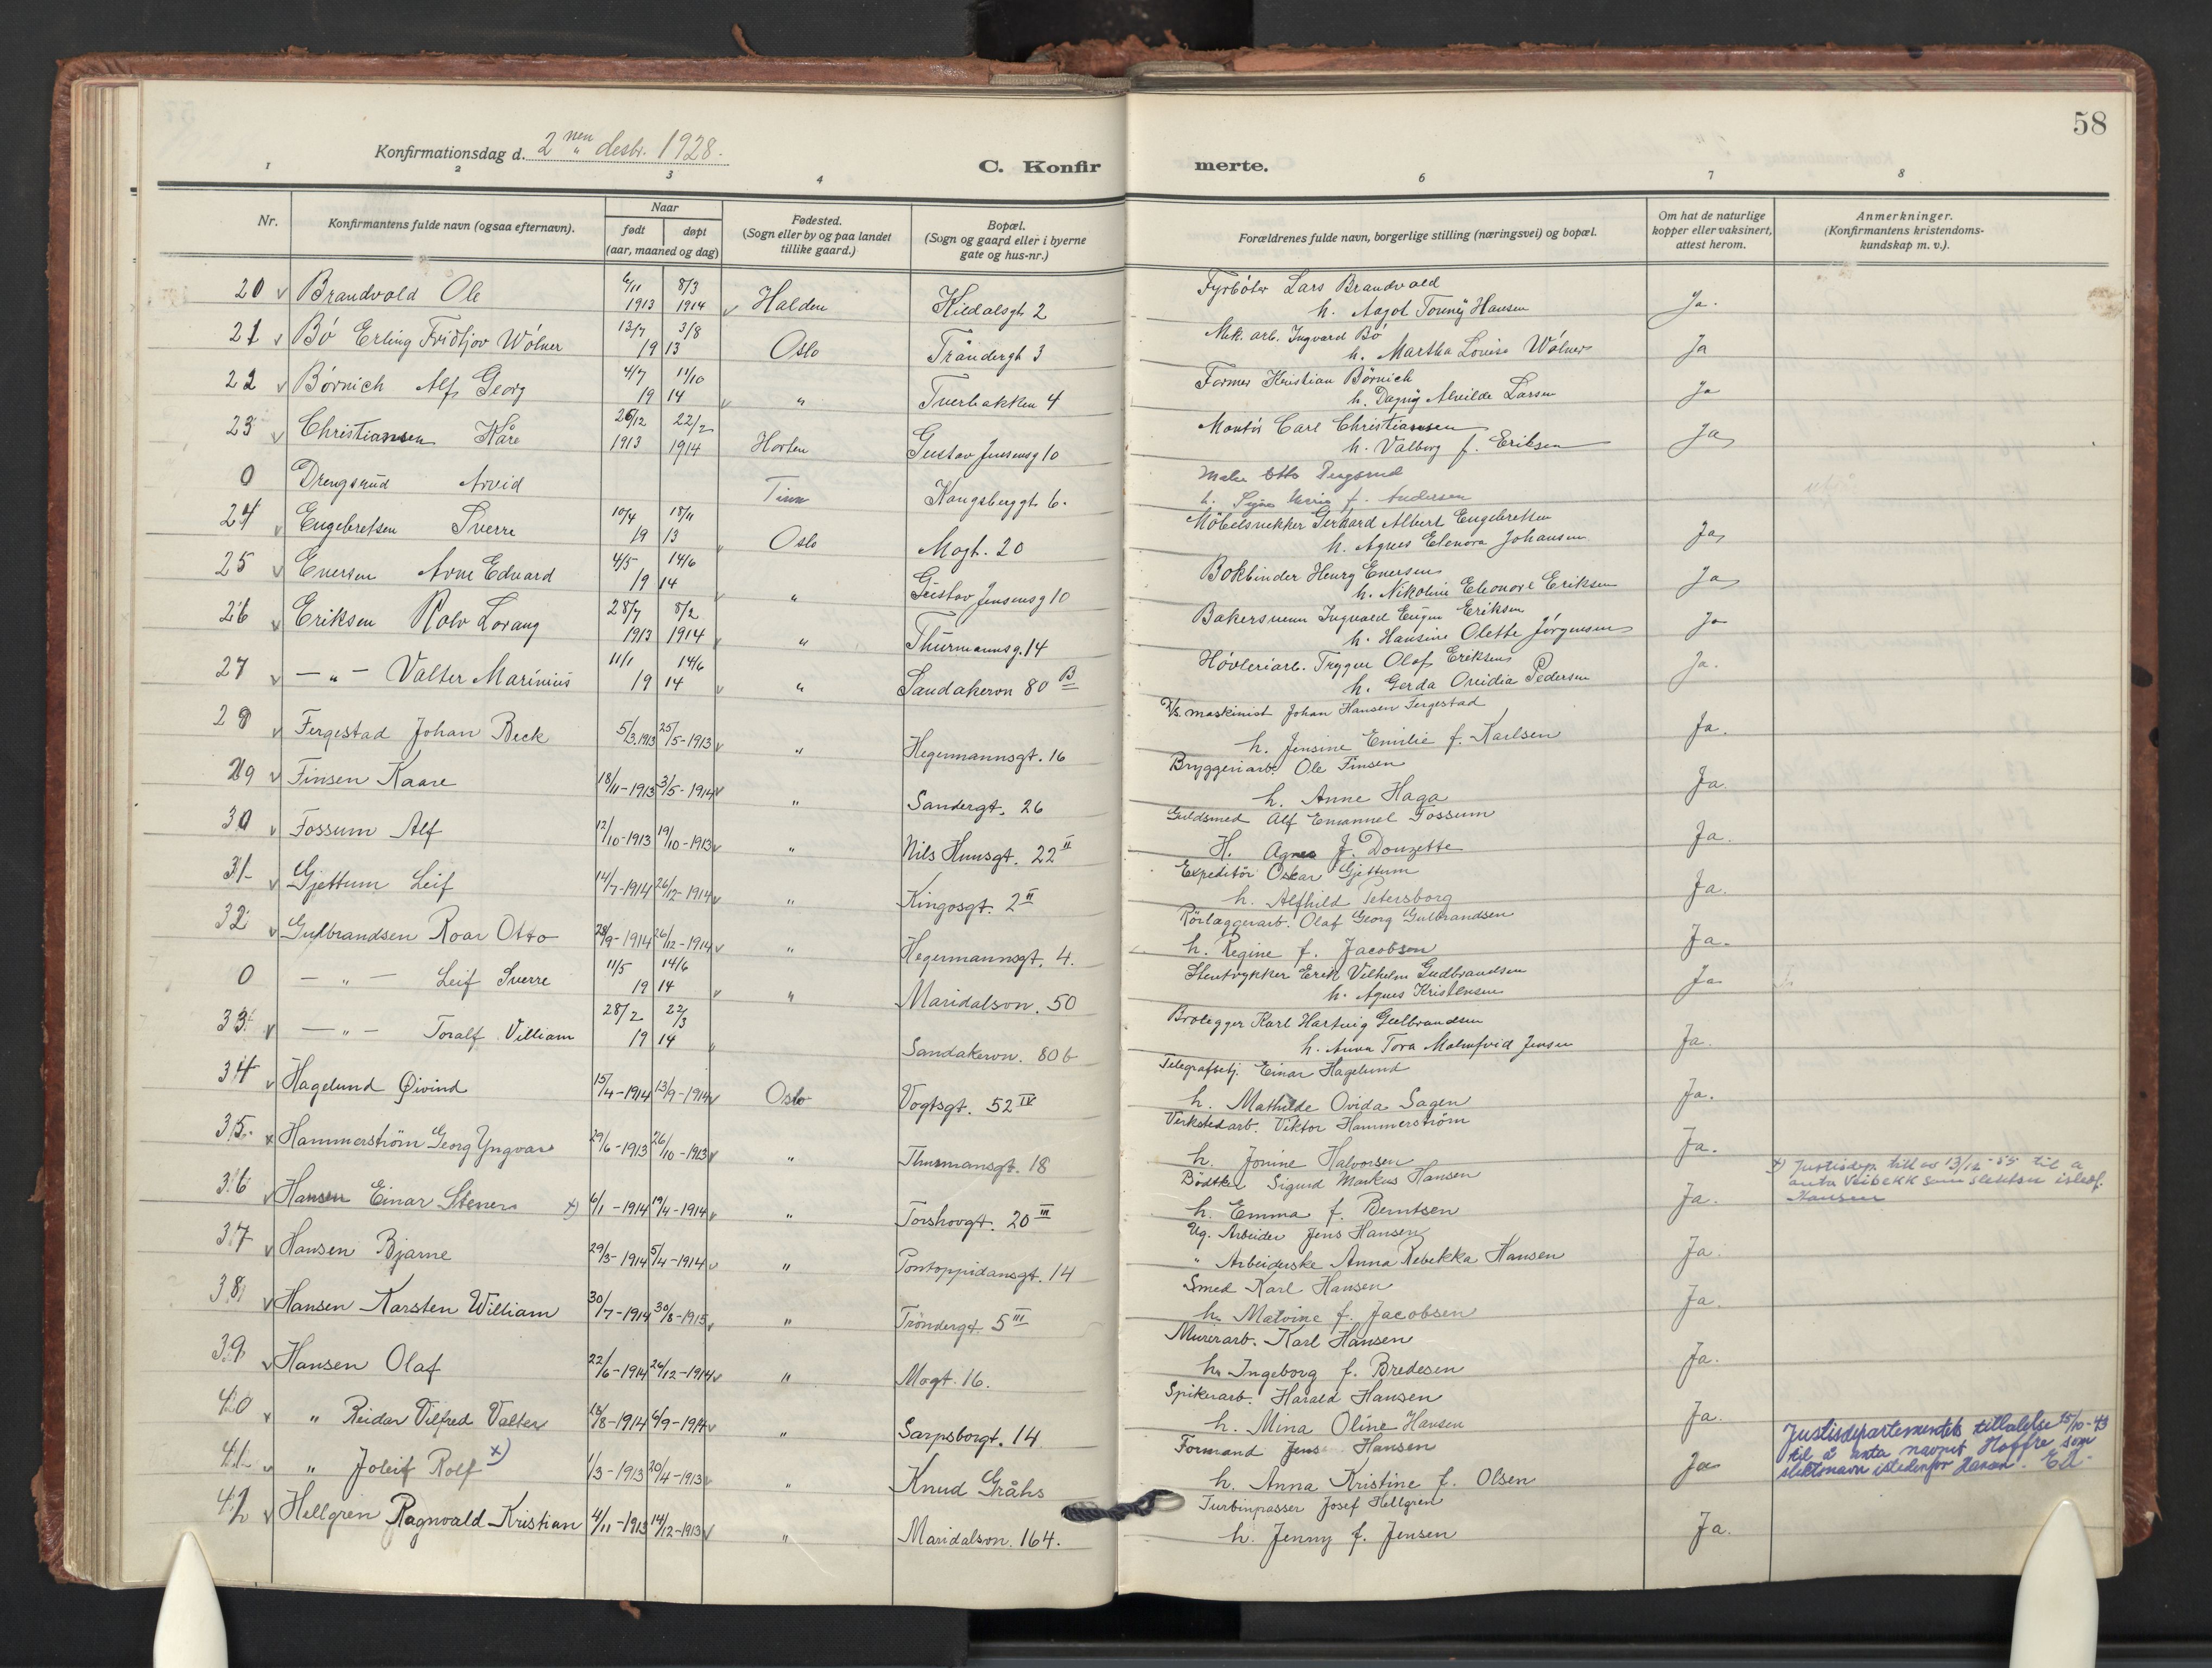 58
Konfirmationsdag d. 2nen desbr. 1928.
C. Konfirmerte.
1 2 3 4 6 7 8
Nr.
Konfirmantens fulde navn (ogsaa efternavn).
Naar
født døpt
(aar, maaned og dag)
Fødested.
(Sogn eller by og paa landet
tillike gaard.)
Bopæl.
(Sogn og gaard eller i byerne
gate og hus-nr.)
Forældrenes fulde navn, borgerlige stilling (næringsvei) og bopæl.
Om hat de naturlige
kopper eller vaksinert,
attest herom.
Anmerkninger.
(Konfirmantens kristendoms-
kundskap m. v.).
20 v Brandvold Ole 6/11 1913 8/3 1914 v Halden Kildalsgt 2 Fyrbøter Lars Brandvold
h. Aagot Tonny Hansen Ja.
21 v Bø Erling Fridtjov Wølner 13/7 3/8 19 13 Oslo Trøndergt 3 Mek. arb. Ingvard Bø
h. Martha Lovise Wølner Ja
22 v Børnich Alf Georg 4/7 11/10 19 14 v " Tverbakken 4 Former Kristian Børnich
h. Dagny Alvilde Larsen Ja
23 v Christiansen Kåre 26/12 1913 22/2 1914 Horten Gustav Jensensg 10 Montør Carl Christiansen
h. Valborg f. Eriksen Ja
0 Drengsrud Arvid Tinn Kongsberggt 6. Maler Otto
h. Signe f. Andersen
24 v Engebretsen Sverre 10/4 18/11 19 13 v Oslo Mogt. 20 Møbelsnekker Gerhard Albert Engebretsen
h. Agnes Elenora Johansen Ja
25 v Enersen Arne Edvard 4/5 14/6 19 14 v " Gustav Jensensg 10 Bokbinder Henry Enersen
h. Nikoline Eleonore Eriksen Ja
26 v Eriksen Rolv Lorang 28/7 1913 8/2 1914 v " Thurmannsg. 14 Bakersvenn Ingvald Eugen Eriksen
h. Hansine Olette Jørgensen Ja
27 v — " — Valter Marinius 11/1 14/6 19 14 v " Sandakervn 80 B Høvleriarb. Trygve Olaf Eriksen
h. Gerda Ovidia Pedersen Ja.
28 v Fergestad Johan Beck 5/3 1913 25/5-1913 v " Hegermannsgt. 16 maskinist Johan Hansen Fergestad
h. Jensine Emilie f. Karlsen Ja.
29 v Finsen Kaare 18/11-1913 3/5-1914 v " Sandergt. 26 Bryggeriarb. Ole Finsen
h. Anne Haga Ja.
30 v Fossum Alf 12/10-1913 19/10-1913 v " Nils Huusgt. 22 II Guldsmed Alf Emanuel Fossum
H. Agnes f. Douzette Ja.
31 v Gjettum Leif 14/7-1914 26/12-1914 v " Kingosgt. 2 II Expeditør Oskar Gjettum
h. Alfhild Petersborg Ja.
32 v Gulbrandsen Roar Otto 28/9-1914 26/12-1914 v " Hegermannsgt. 4. Rørlæggerarb. Olaf Georg Gulbrandsen
h. Regine f. Jacobson Ja.
0 — " — Leif Sverre 11/5 14/6 19 14 v " Maridalsvn. 50 Stentrykker Erik Vilhelm Gudbrandsen
h. Agnes Kristensen Ja
33 v — " — Toralf Villiam 28/2 22/3 19 14 v Sandakervn. 80 b Brolegger Karl Hartvig Gulbrandsen
h. Anna Tora Malmfrid Jensen Ja.
34 v Hagelund Øivind 15/4-1914 13/9-1914 v Oslo Vogtsgt. 52 IV Telegrafbetj. Einar Hagelund
h. Mathilde Ovida Sagen Ja.
35 v Hammerstrøm Georg Yngvar 29/6-1913 26/10-1913 v " Thurmansgt. 18 Verkstedarb. Viktor Hammerstrøm
h. Jonine Halvorsen Ja.
36 v Hansen Einar Stener x) 6/1-1914 19/4-1914 v " Torshovgt. 20 III Bødtker Sigurd Markus Hansen
h. Emma f. Berntsen Ja.
x) Justisdep. till. av 13/12-55 til å
anta Veibekk som slektsn istedf.
Hansen
37 v Hansen Bjarne 29/3-1914 5/4-1914 v " Pontoppidansgt. 14 Ug. Arbeider Jens Hansen
" Arbeiderske Anna Rebekka Hansen Ja.
38 v Hansen Karsten William 30/7-1914 30/8-1915 v " Trøndergt. 5 III Smed Karl Hansen
h. Malvine f. Jacobsen Ja.
39 v Hansen Olaf 22/6-1914 26/12-1914 v " Mogt. 16. Murerarb. Karl Hansen
h. Ingeborg f. Bredesen Ja.
40 v " Reidar Vilfred Valter 18/8-1914 6/9-1914 v " Sarpsborgt. 14 Spikerarb. Harald Hansen
h. Mina Oline Hansen Ja.
41 v " Joleif Rolf x) 1/3-1913 20/4-1913 v " Knud Gråhs Formand Jens Hansen
h. Anna Kristine f. Olsen Ja
Justisdepartementets tillatelse 15/10-43
til å anta navnet Hoffre som
slektsnavn istedenfor Hansen. EH
42 v Hellgren Ragnvald Kristian 4/11-1913 14/12-1913 v " Maridalsvn. 164. Turbinpasser Josef Hellgren
h. Jenny f. Jensen Ja.